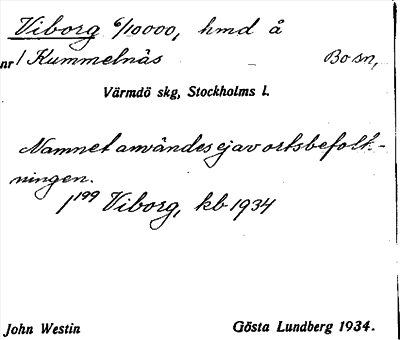 Viborg 6/10000, hmd å
nr 1 Kummelnäs Bo sn,
Värmdö skg, Stockholms l.
Namnet användes ej av ortsbefolk-
ningen.
1199 Viborg, kb 1934
John Westin Gösta Lundberg 1934.